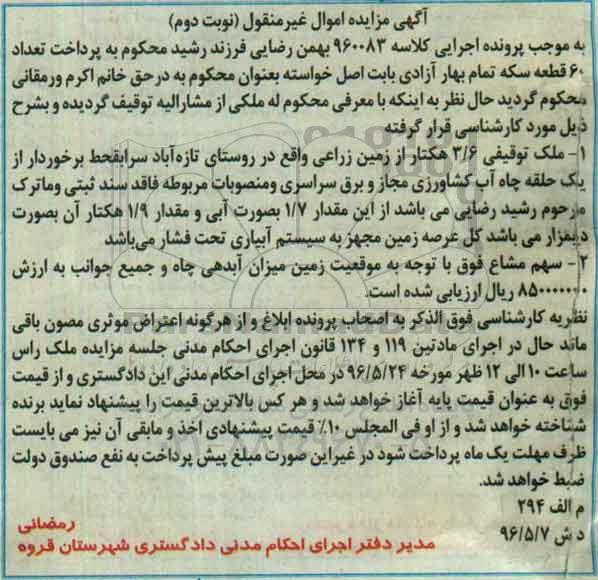 آگهی مزایده اموال غیرمنقول (نوبت دوم)
به موجب پرونده اجرایی کلاسه ۹۶۰۰۸۳ بهمن رضایی فرزند رشید محکوم به پرداخت تعداد
۶۰ قطعه سکه تمام بهار آزادی بابت اصل خواسته بعنوان محکوم به درحق خانم اکرم ورمقانی
محکوم گردید حال نظر به اینکه با معرفی محکوم له ملکی از مشارالیه توقیف گردیده و بشرح
ذیل مورد کارشناسی قرار گرفته
۱- ملک توقیفی ۳/۶ هکتار از زمین زراعی واقع در روستای تازه‌آباد سرابقحط برخوردار از
یک حلقه چاه آب کشاورزی مجاز و برق سراسری ومنصوبات مربوطه فاقد سند ثبتی وماترک
مرحوم رشید رضایی می باشد از این مقدار ۱/۷ بصورت آبی و مقدار ۱/۹ هکتار آن بصورت
دیمزار می باشد کل عرصه زمین مجهز به سیستم آبیاری تحت فشار می‌باشد
۲- سهم مشاع فوق با توجه به موقعیت زمین میزان آبدهی چاه و جمیع جوانب به ارزش
۸۵۰۰۰۰۰۰۰ ریال ارزیابی شده است.
نظریه کارشناسی فوق الذکر به اصحاب پرونده ابلاغ و از هرگونه اعتراض موثری مصون باقی
ماند حال در اجرای مادتین ۱۱۹ و ۱۳۴ قانون اجرای احکام مدنی جلسه مزایده ملک راس
ساعت ۱۰ الی ۱۲ ظهر مورخه ۹۶/۵/۲۴ در محل اجرای احکام مدنی این دادگستری و از قیمت
فوق به عنوان قیمت پایه آغاز خواهد شد و هر کس بالاترین قیمت را پیشنهاد نماید برنده
شناخته خواهد شد و از او فی المجلس ۱۰٪ قیمت پیشنهادی اخذ و مابقی آن نیز می بایست
ظرف مهلت یک ماه پرداخت شود در غیراین صورت مبلغ پیش پرداخت به نفع صندوق دولت
ضبط خواهد شد.
م الف ۲۹۴
د ش ۹۶/۵/۷
رمضانی
مدیر دفتر اجرای احکام مدنی دادگستری شهرستان قروه